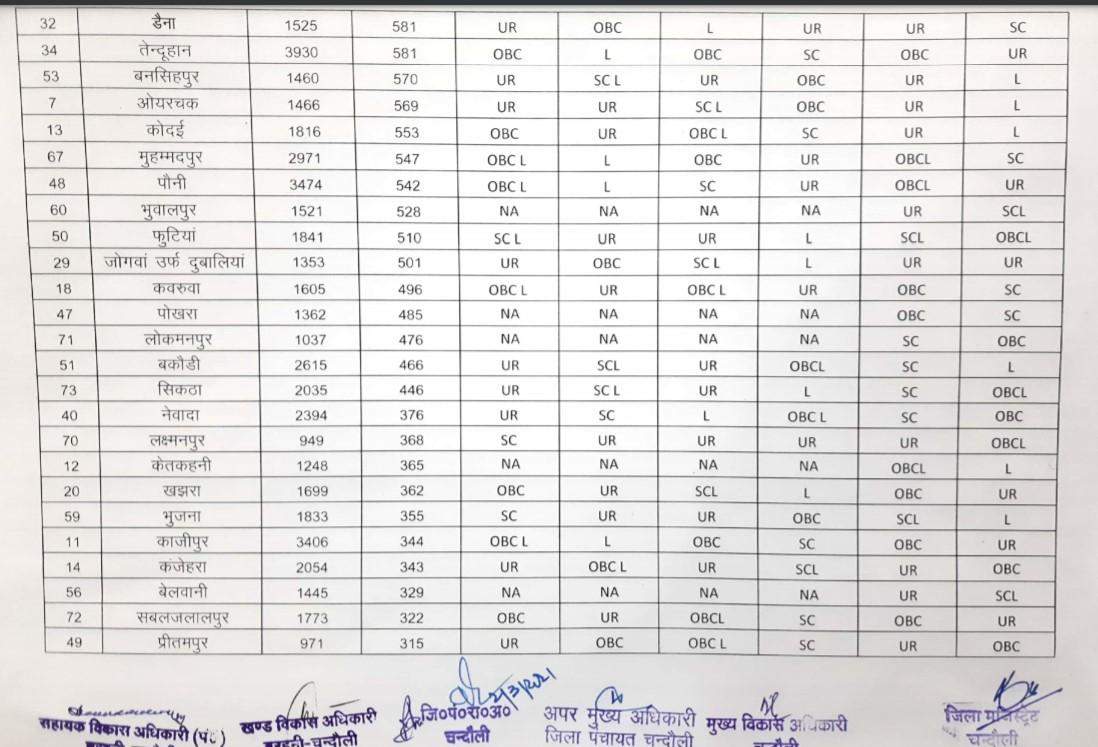 32 डैना 1525 581 UR OBC L UR UR SC
34 तेन्दूहान 3930 581 OBC L OBC SC OBC UR
53 बनसिहपुर 1460 570 UR SC L UR OBC UR L
7 ओयरचक 1466 569 UR UR SC L OBC UR L
13 कोदई 1816 553 OBC UR OBC L SC UR L
67 मुहम्मदपुर 2971 547 OBC L L OBC UR OBCL SC
48 पौनी 3474 542 OBC L L SC UR OBCL UR
60 भुवालपुर 1521 528 NA NA NA NA UR SCL
50 फुटियां 1841 510 SC L UR UR L SCL OBCL
29 जोगवां उर्फ दुबालियां 1353 501 UR OBC SC L L UR UR
18 कवरुवा 1605 496 OBC L UR OBC L UR OBC SC
47 पोखरा 1362 485 NA NA NA NA OBC SC
71 लोकमनपुर 1037 476 NA NA NA NA SC OBC
51 बकौडी 2615 466 UR SCL UR OBCL SC L
73 सिकठा 2035 446 UR SC L UR L SC OBCL
40 नेवादा 2394 376 UR SC L OBC L SC OBC
70 लक्ष्मनपुर 949 368 SC UR UR UR UR OBCL
12 केतकहनी 1248 365 NA NA NA NA OBCL L
20 खझरा 1699 362 OBC UR SCL L OBC UR
59 भुजना 1833 355 SC UR UR OBC SCL L
11 काजीपुर 3406 344 OBC L L OBC SC OBC UR
14 कंजेहरा 2054 343 UR OBC L UR SCL UR OBC
56 बेलवानी 1445 329 NA NA NA NA UR SCL
72 सबलजलालपुर 1773 322 OBC UR OBCL SC OBC UR
49 प्रीतमपुर 971 315 UR OBC OBC L SC UR OBC
सहायक विकास अधिकारी (पं०) खण्ड विकास अधिकारी जि०पं०रा०अ० अपर मुख्य अधिकारी मुख्य विकास अधिकारी जिला मजिस्ट्रेट
चन्दौली चन्दौली जिला पंचायत चन्दौली चन्दौली चन्दौली